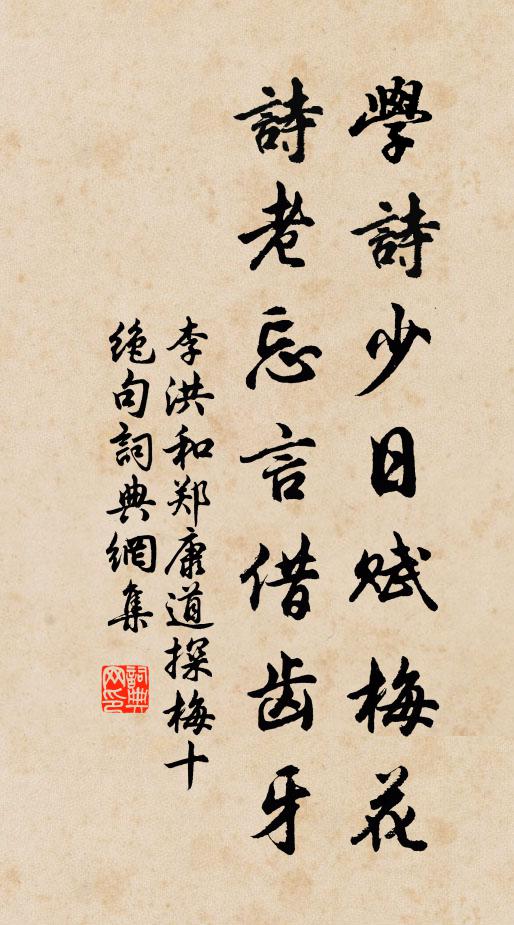 學詩少日賦梅花
詩老忘言借齿牙
李洪和郑康道探梅十
絶句詞典網集
詞典
网印